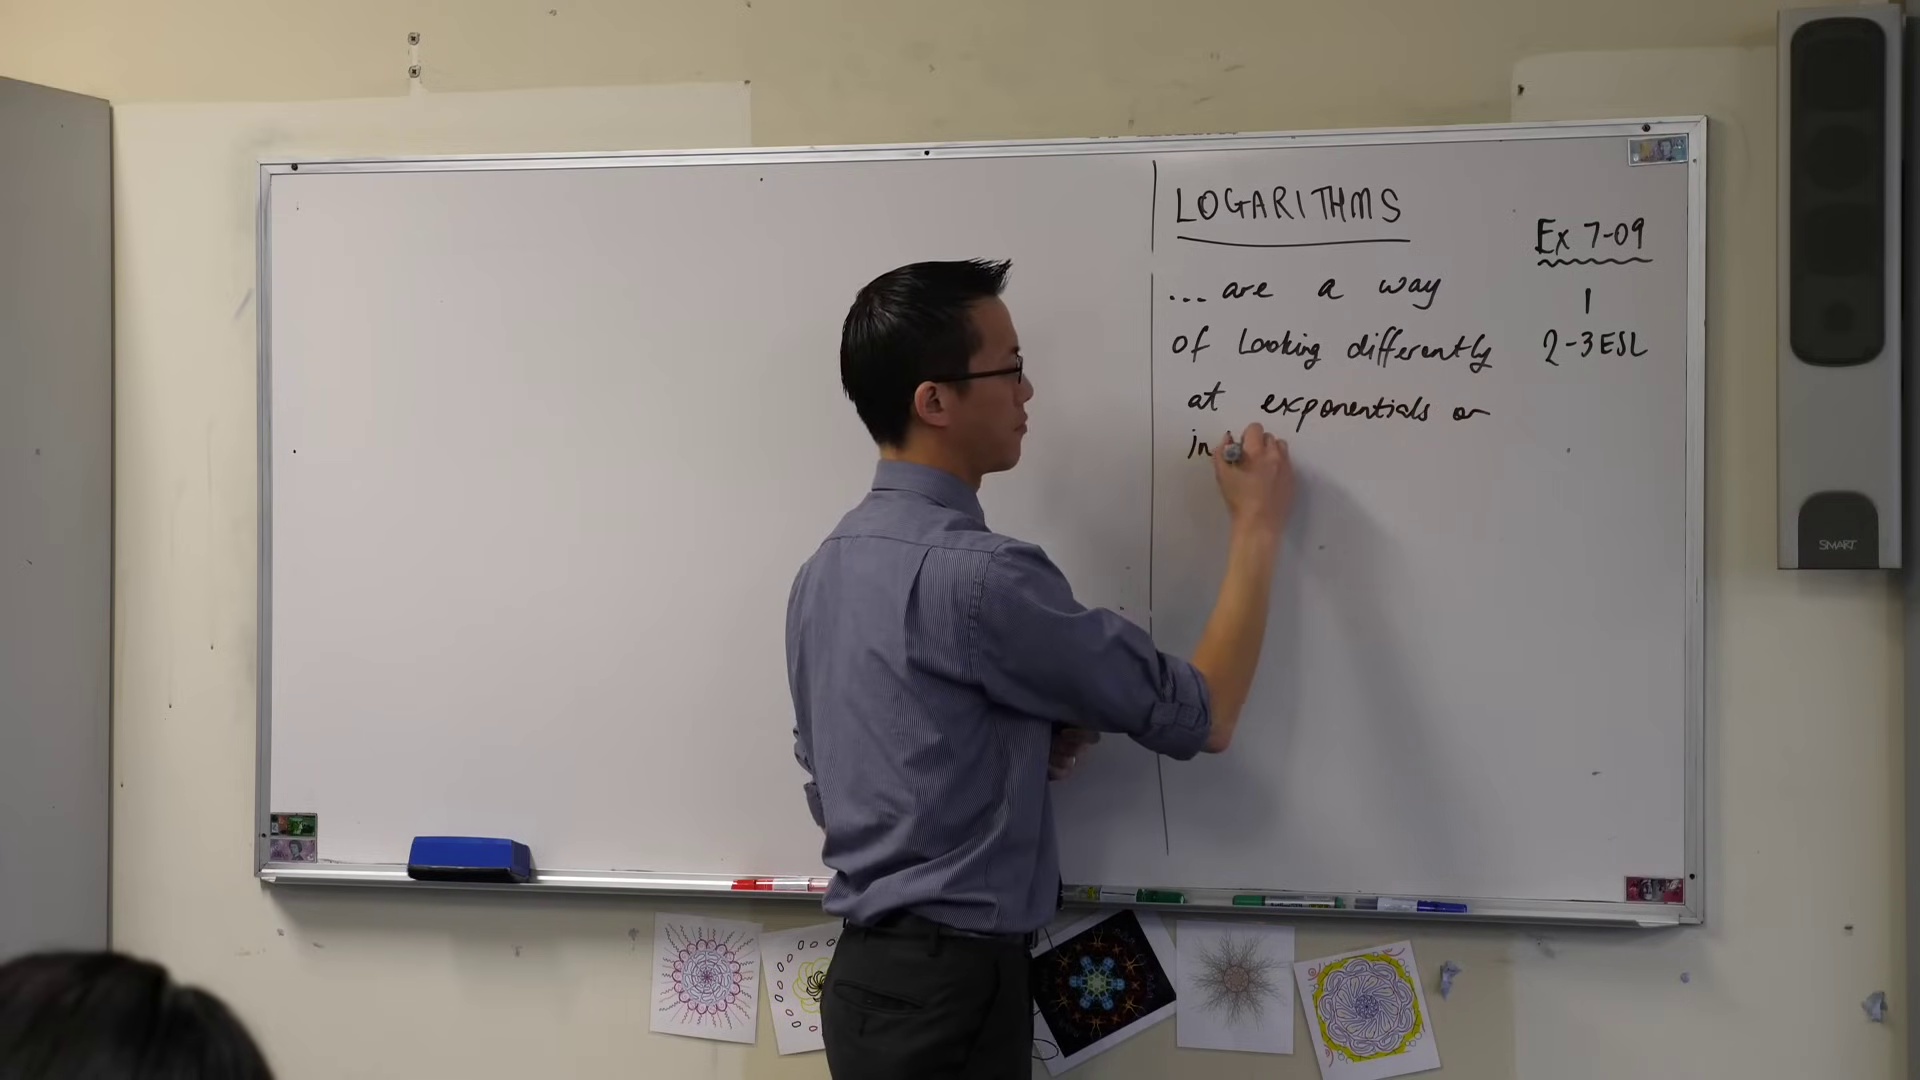 LOGARITHMS
... are a way
of looking differently
at exponentials or
in
Ex 7-09
1
2-3ESL
SMART